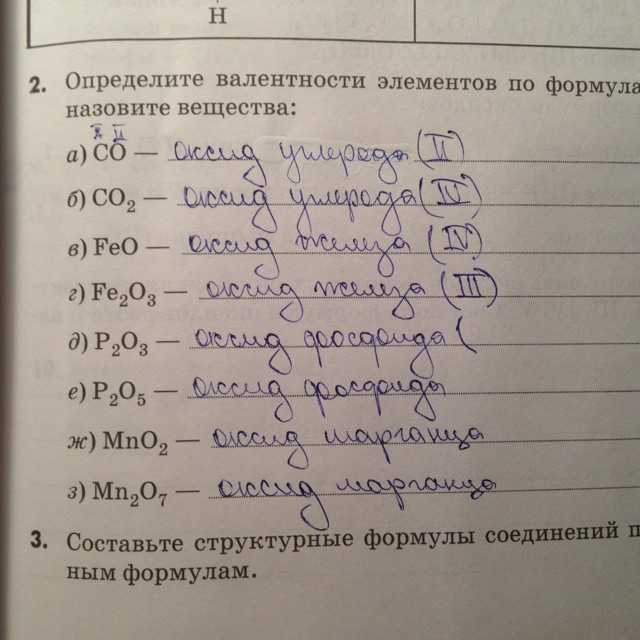 H
2. Определите валентности элементов по формула
назовите вещества:
II II
а) CO — оксид углерода (II)
б) CO₂ — оксид углерода (IV)
в) FeO — оксид железа (IV)
г) Fe₂O₃ — оксид железа (III)
д) P₂O₃ — оксид фосфора (
е) P₂O₅ — оксид фосфора
ж) MnO₂ — оксид марганца
з) Mn₂O₇ — оксид марганца
3. Составьте структурные формулы соединений п
ным формулам.